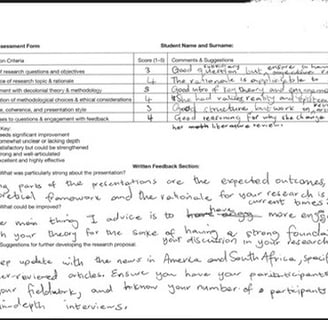 ssessment Form Student Name and Surname:
on Criteria Score (1-5) Comments & Suggestions
of research questions and objectives 3 Good question but
ce of research topic & rationale 4 The rationale is applicable to
ment with decolonial theory & methodology 3 Good intro of theory and engagement
tion of methodological choices & ethical considerations 4 She had
, coherence, and presentation style 3 Good structure but work on
ses to questions & engagement with feedback 4 Good reasoning for why she change
her literature review.
Key:
eeds significant improvement
omewhat unclear or lacking depth
atisfactory but could be strengthened
rong and well-articulated
xcellent and highly effective
Written Feedback Section:
What was particularly strong about the presentation?
ng parts of the presentations are the expected outcomes,
oretical framework and the rationale for your research is
current times
What could be improved?
e main thing I advise is to more eng
h your theory for the sake of having a strong founda
your discussion in your research
Suggestions for further developing the research proposal:
ep update with the news in America and South Africa, specif
er-reviewed articles. Ensure you have your participants
your fieldwork, and know your number of participants
in-depth interviews.